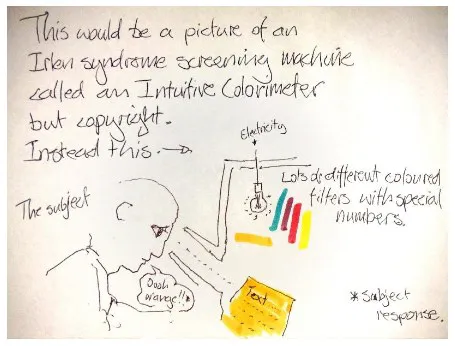 This would be a picture of an
Irlen syndrome screening machine
called an Intuitive Colorimeter
but copyright.
Instead this. →
Electricity
Lots of different coloured
filters with special
numbers.
The subject
Oooh
orange!!*
Text
* Subject
response.